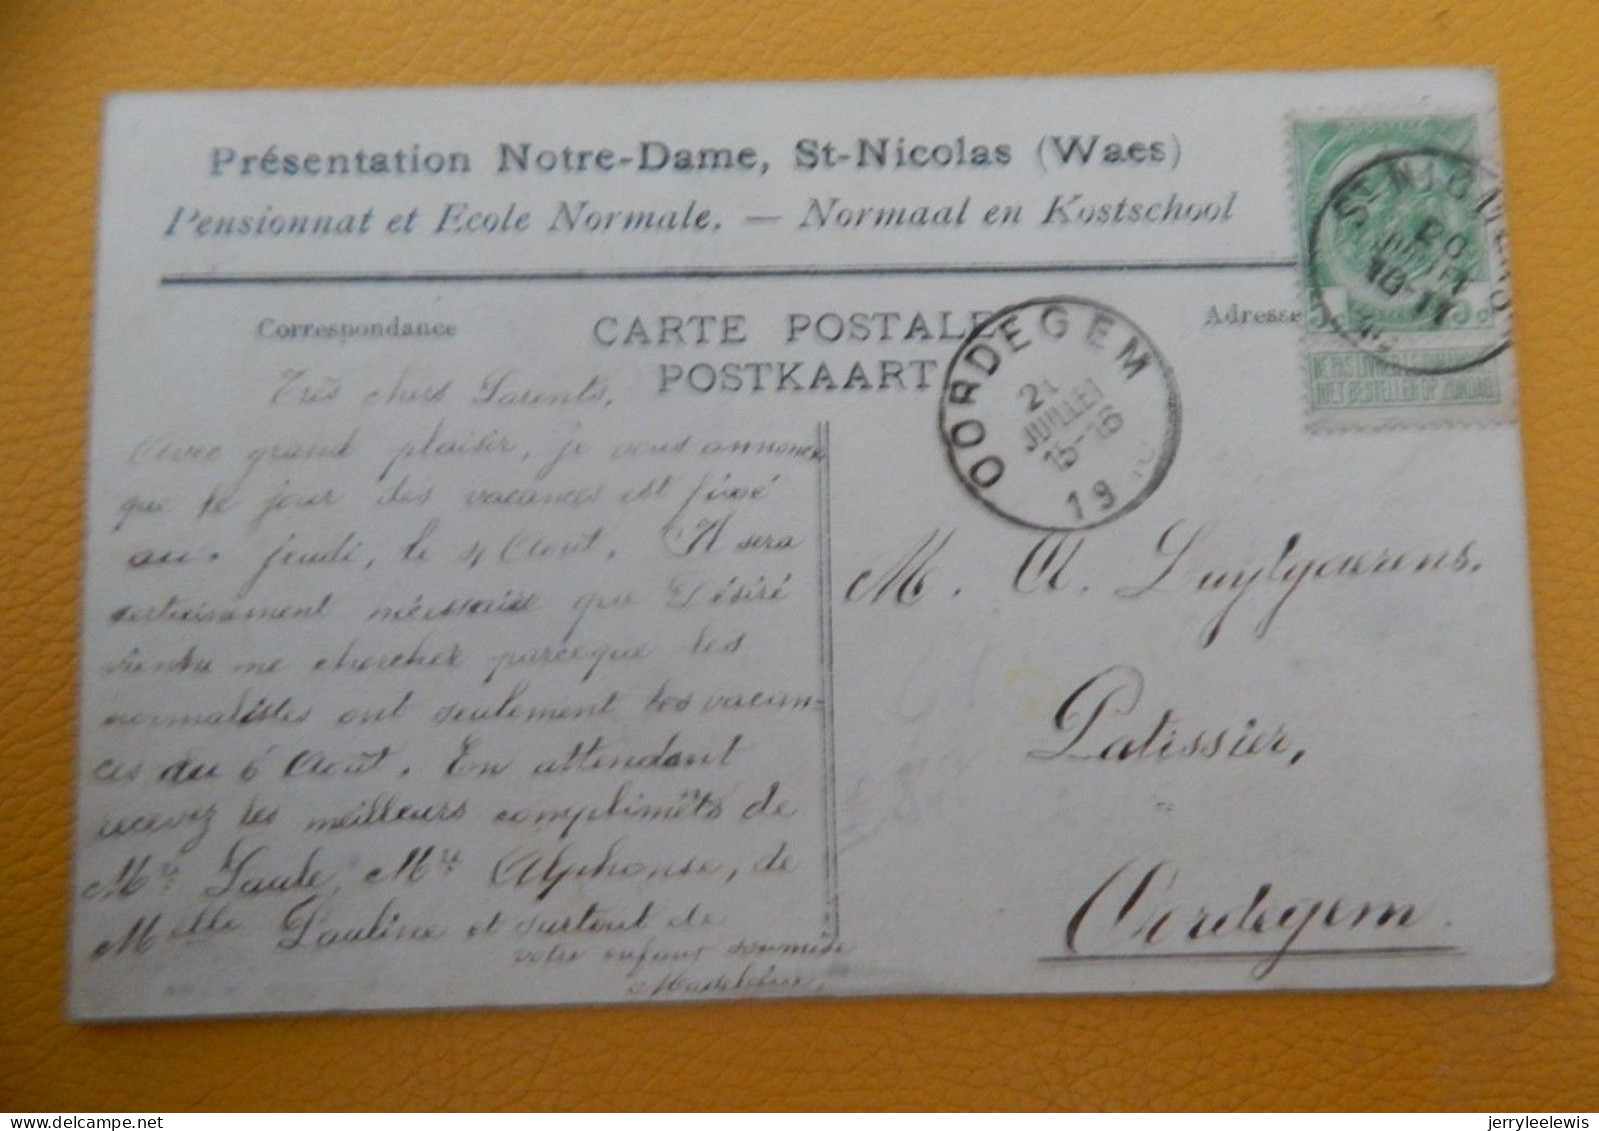 Présentation Notre-Dame, St-Nicolas (Waes)
Pensionnat et Ecole Normale. — Normaal en Kostschool
Correspondance
CARTE POSTALE
POSTKAART
Adresse
ST NICOLAS
20
JUILLET
OORDEGEM
21
JUILLET
15-16
19
NE PAS LIVRER LE DIMANCHE
NIET BESTELLEN OP ZONDAG
Très chers Parents,
Avec grand plaisir, je vous annonce
que le jour des vacances est fixé
au jeudi, le 4 Août. Il sera
certainement nécessaire que Désiré
vienne me chercher parceque les
normalistes ont seulement les vacan-
ces du 6 Août. En attendant
recevez les meilleurs complimêts de
Mr Paule, Mr Alphonse, de
Melle Pauline et surtout de
votre enfant soumise
Madeleine.
M. A. Luytgaerens.
Patissier,
Oordegem
jerryleelewis